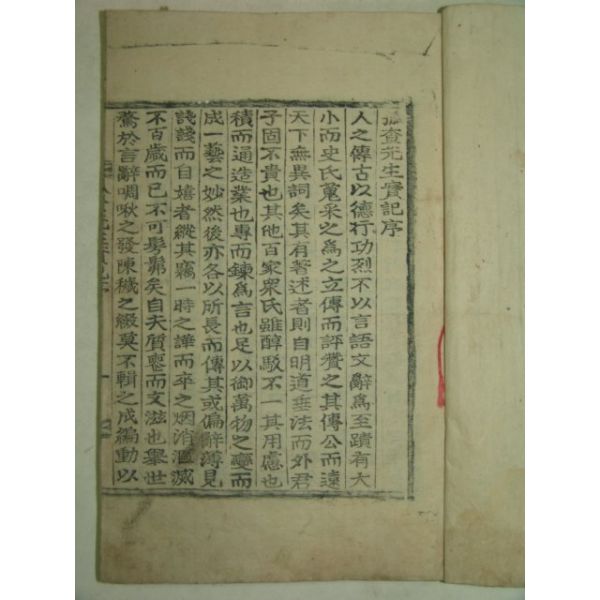 孤査先生實記序
人之傳古以德行功烈不以言語文辭爲至蹟有大
小而史氏蒐采之爲之立傳而評贊之其傳公而遠
天下無異詞矣其有著述者則自明道垂法而外君
子固不貴也其他百家衆氏雖醇駁不一其用慮也
積而通造業也專而鍊爲言也足以御萬物之變而
成一藝之妙然後亦各以所長而傳其或偏辭薄見
諓諓而自嬉者縱其竊一時之譁而卒之烟消漚滅
不百歲而已不可髣髴矣自夫質喪而文滋也擧世
騖於言辭啁啾之發陳穢之綴莫不輯之成編動以